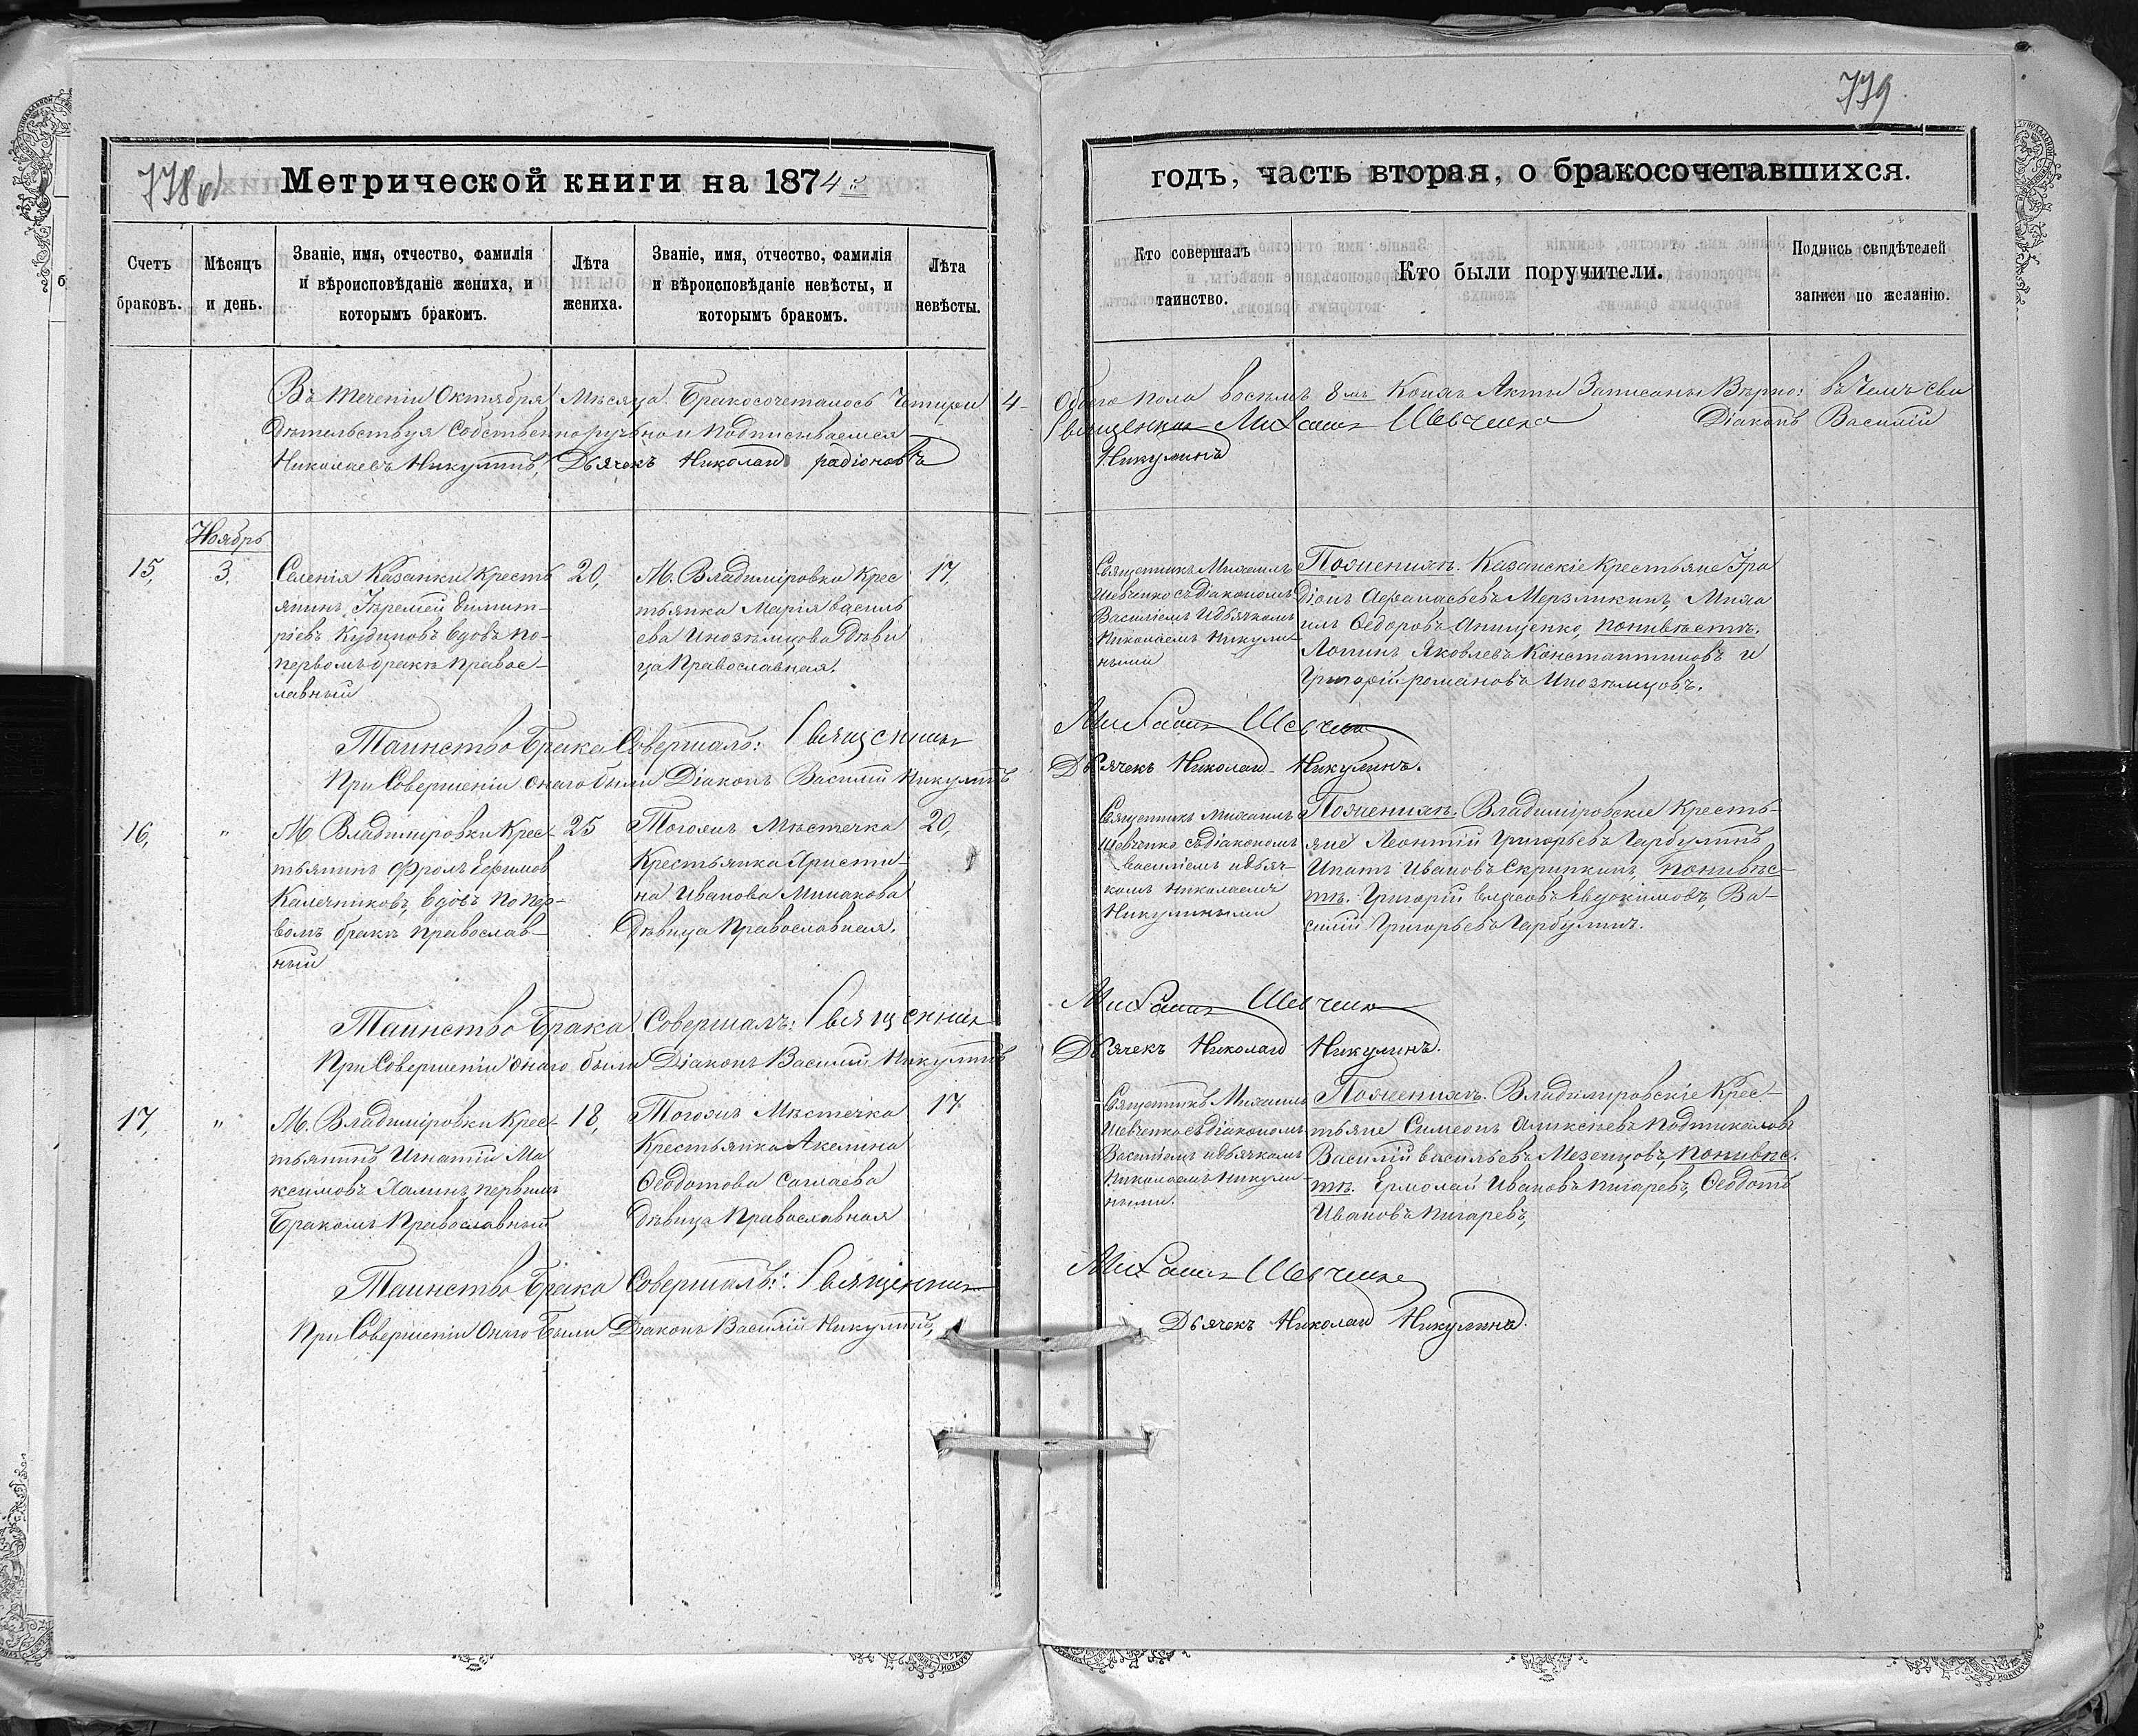 779
778 об
Метрической книги на 1874й
годъ, часть вторая, о бракосочетавшихся.
Счетъ
браковъ.
Мѣсяцъ
и день.
Званіе, имя, отчество, фамилія
и вѣроисповѣданіе жениха, и
которымъ бракомъ.
Лѣта
жениха.
Званіе, имя, отчество, фамилія
и вѣроисповѣданіе невѣсты, и
которымъ бракомъ.
Лѣта
невѣсты.
Кто совершалъ
таинство.
Кто были поручители.
Подпись свидѣтелей
записи по желанію.
Въ теченіи Октября Мѣсяца Бракосочеталось Четыри 4
Обоего пола восемь 8мъ Коихъ Акты Записаны Вѣрно: въ Чемъ сви
дѣтельствуя Собственноручно и Подписываемся
Священникъ Михаилъ Шевченко Діаконъ Василій
Николаевъ Никулинъ, Дьячекъ Николай радіоновъ
Никулинъ
Ноябрь
15,
3,
Селенія Казанки Кресть
янинъ Іеремей Димит-
ріевъ Кудиновъ вдовъ по-
первомъ бракѣ Правос-
лавный
20,
М. Владиміровки Крес
тьянка Марія василь
ева Иноземцова Дѣви
ца Православная.
17,
Священникъ Михаилъ
Шевченко съ Діакономъ
Василіемъ и дьячкомъ
Николаемъ Никули-
ными
По женихѣ. Казанскіе Крестьяне Іра
діонъ Афанасьевъ Мерзликинъ, Миха
илъ Федоровъ Анищенко, по невѣстѣ.
Логинъ Яковлевъ Константиновъ и
Григорій романовъ Иноземцовъ.
Таинство Брака Совершалъ: Священникъ
Михаилъ Шевченко
При Совершеніи онаго были Діаконъ Василій Никулинъ
Дьячекъ Николай Никулинъ.
16,
"
М Владиміровки Крес-
тьянинъ Фролъ Ефимов
Калечниковъ, вдовъ по пер-
вомъ бракѣ православ-
ный
25
Тогожъ Мѣстечка
Крестьянка Христи-
на Иванова Минакова
Дѣвица Православная.
20,
Священникъ Михаилъ
Шевченко съ діакономъ
Василіемъ и дьяч-
комъ Николаемъ
Никулиными
По женихѣ. Владиміровскіе Кресть-
яне Леонтій Григорьевъ Гарбулинъ
Ипатъ Ивановъ Скрипкинъ, по невѣс-
тѣ. Григорій власовъ Евдокимовъ, Ва-
силій Григорьевъ Гарбулинъ.
Таинство Брака Совершалъ: Священникъ
Михаилъ Шевченко
При Совершеніи онаго были Діаконъ Василій Никулинъ
Дьячекъ Николай Никулинъ.
17,
"
М. Владиміровки Крес-
тьянинъ Игнатій Ма
ксимовъ Халинъ, первымъ
Бракомъ Православный
18,
Тогожъ Мѣстечка
Крестьянка Акелина
Феодотова Саглаева
Дѣвица Православная
17
Священникъ Михаилъ
Шевченко съ діакономъ
Василіемъ и дьячкомъ
Николаемъ Никули-
ными.
По женихѣ. Владиміровскіе Крес-
тьяне Симеонъ Аликсѣевъ
Василій васильевъ Мезенцовъ, по невѣс-
тѣ. Ермолай Ивановъ Пигаревъ, Феодотъ
Ивановъ Пигаревъ,
Таинство Брака Совершалъ: Священникъ
Михаилъ Шевченко
При Совершеніи Онаго Были Діаконъ Василій Никулинъ,
Дьячекъ Николай Никулинъ.